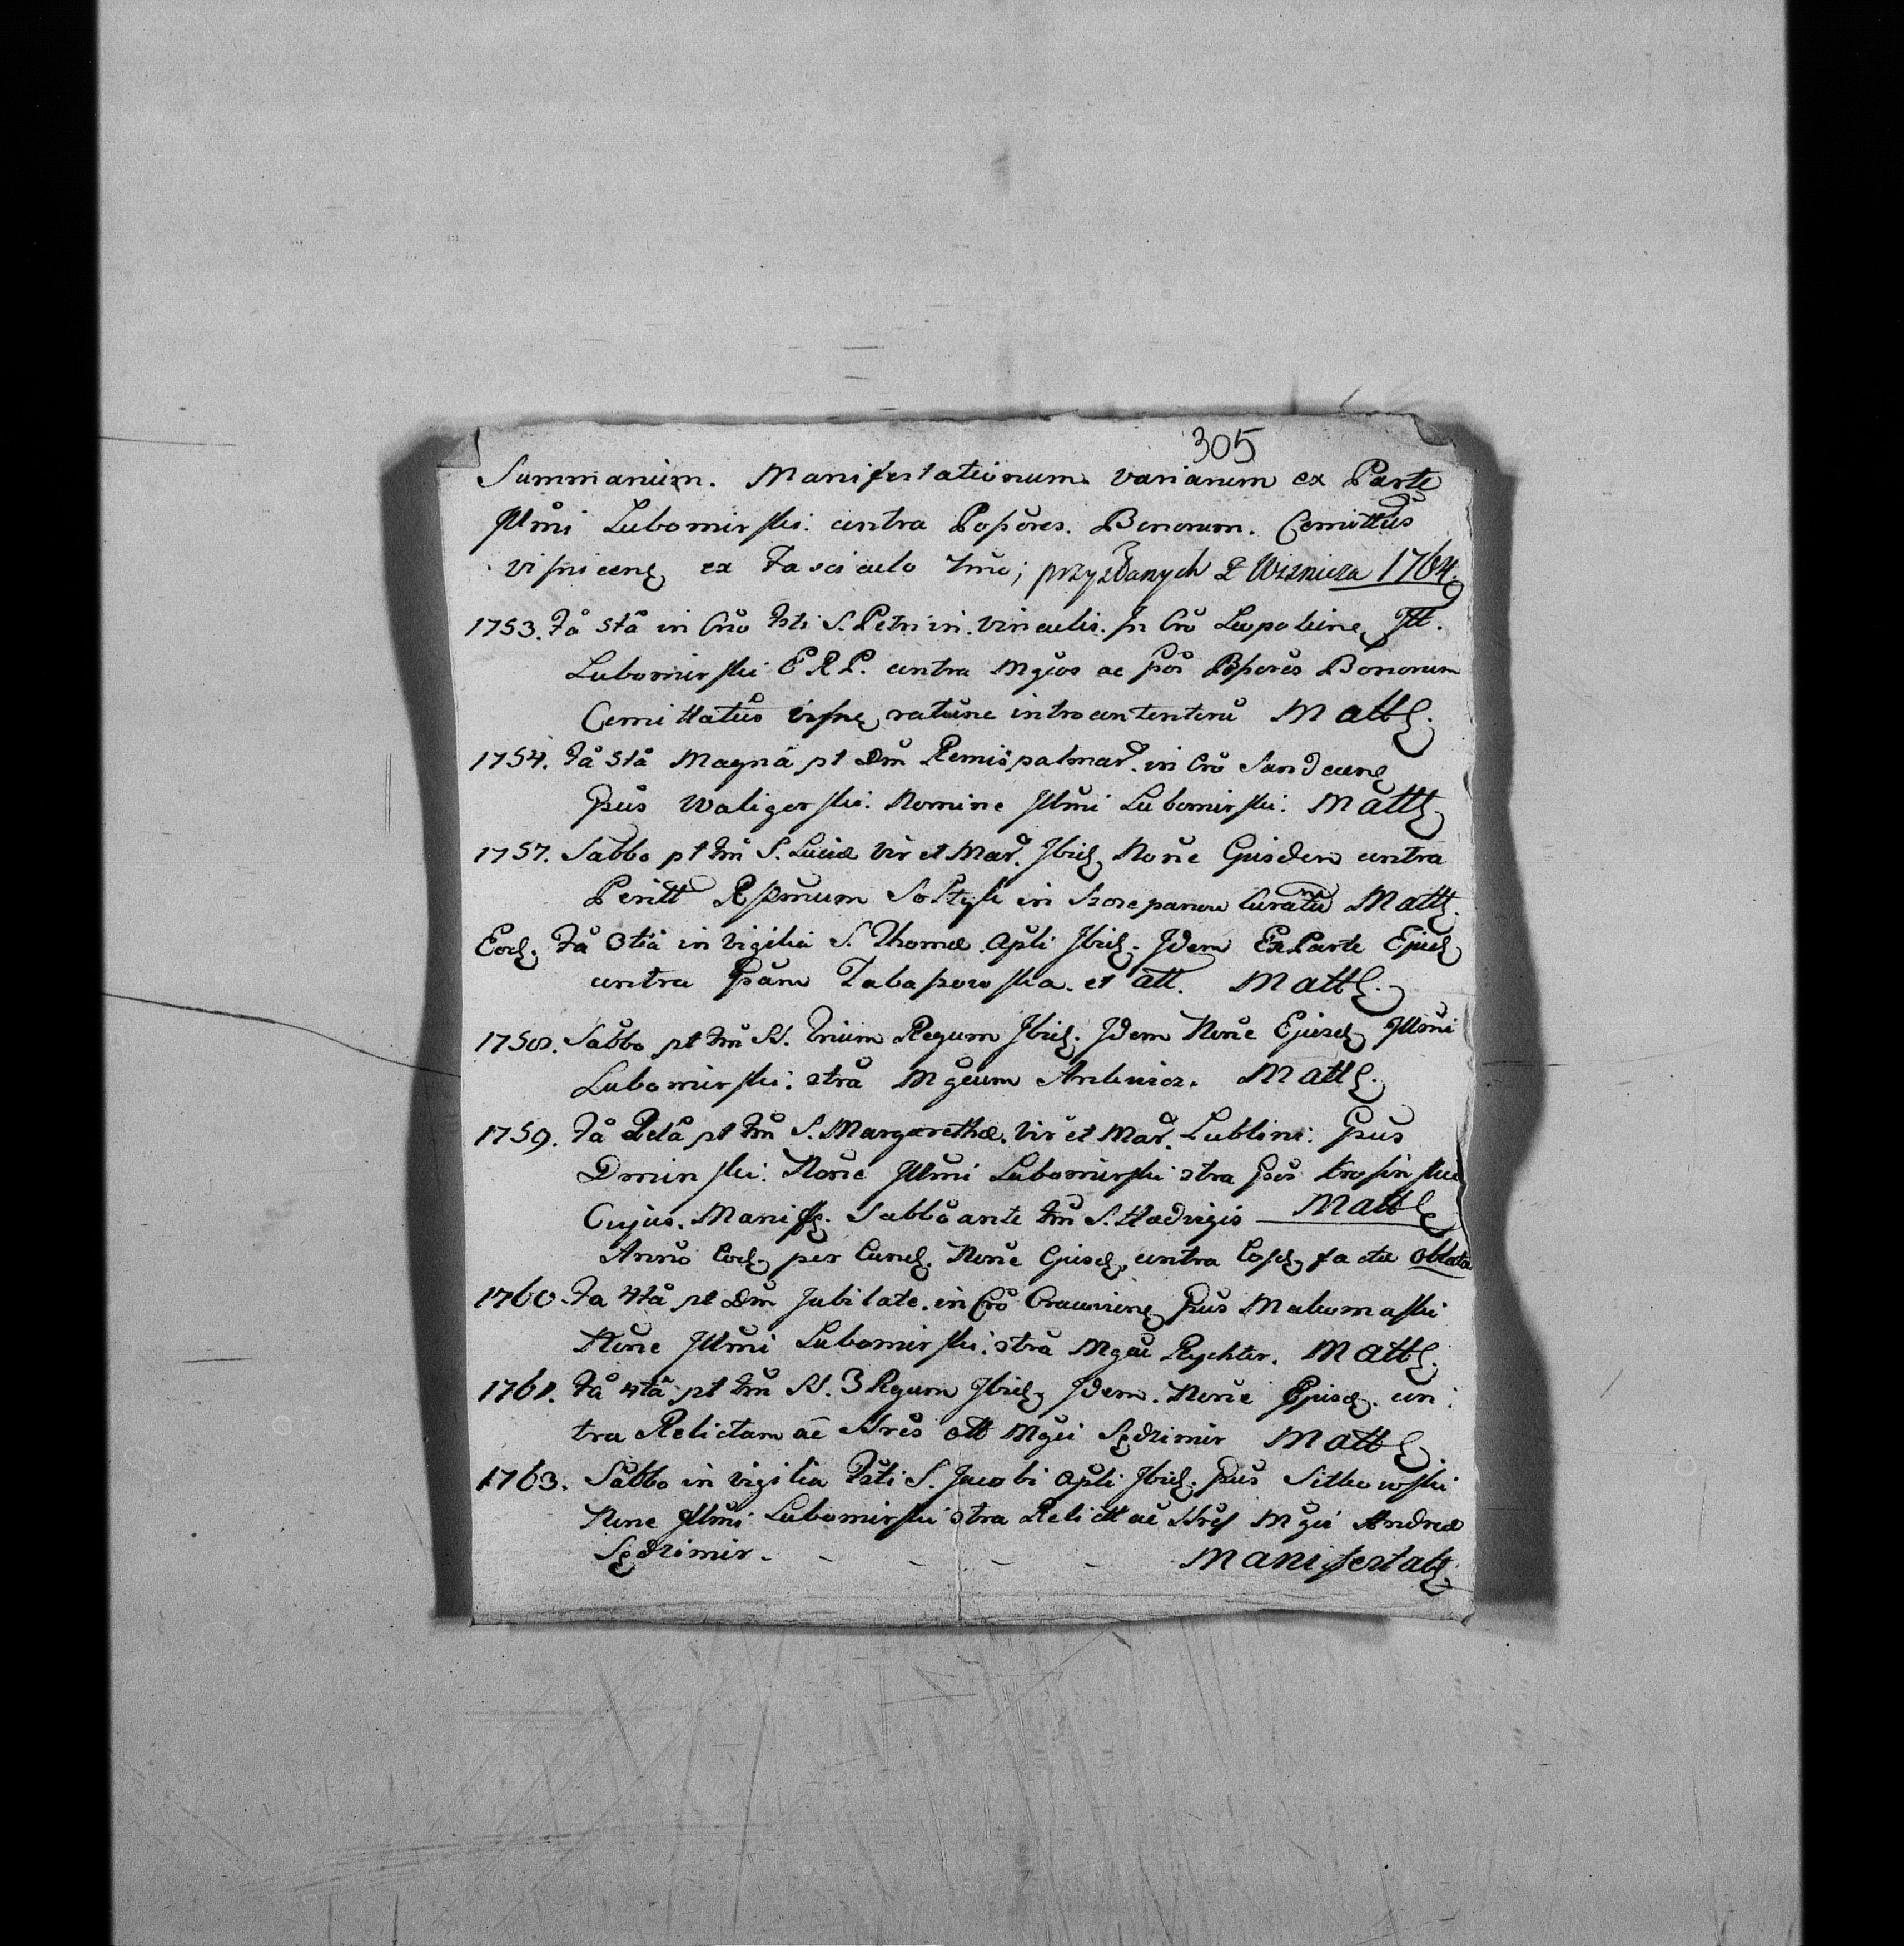 305
Summarium. Manifestationum variarum ex Parte
Jllmi Lubomirski: contra Possores. Bonorum. Comittus
Visnicen ex Fasciculo 1mo; przysłanych z Wisnicza 1764.
1753. Fa 5ta in Cro Fsti S. Petri in. vinculis. in Cro Leopoliens Jll.
Lubomirski contra Mgcos ac Possores Bonorum
Comittatus Visne ratione introcontentoru Matt.
1754. Fa 5ta Magna pt Dm Ramispalmar. in Cro Sandecens
Gsus Waligorski: Nomine Jllmi Lubomirski: Matt
1757. Sabbo pt Fm S. Lucia Vir et Mar. Jbid. Noie Ejusdem contra
Perill Rssmum Soltyk in Szczepanow Curatu Matt.
Eod. Fa 3tia in Vigilia S. Thomæ Apli Jbid. Jdem Ex Parte Ejusd
contra et all. Matt.
1758. Sabbo pt Fm SS. Trium Regum Jbid. Jdem Noie Ejusd Jllmi
Lubomirski: ctra Mgcum Ankwicz. Matt.
1759. Fa 2da pt Fm S. Margarethæ. Vir et Mar. Lublini: Gsus
Dminski: Noie Jllmi Lubomirski ctra Gsos
Cujus. Manif. Sabbo ante Fm S. Hedvigis Matt
Anno Eod. per Eund. Noie Ejusd. contra Eosd. facta oblata
1760. Fa 4ta pt Dm Jubilate. in Cro Cracovien Gsus Makomaski
Noie Jllmi Lubomirski: ctra Mgcu Rychter. Matt.
1761. Fa 4ta pt Fm SS. 3 Regum Jbid. Jdem. Noie Ejusd. con:
tra Relictam ac Hres olt Mgci Sędzimir Matt
1763. Sabbo in Vigilia Fsti S. Jacobi Apli Jbid. Gsus Sitkowski
Noie Jllmi Lubomirski ctra Relictt ac Hres Mgci Andreæ
Sędzimir. - - - - Manifestatt.